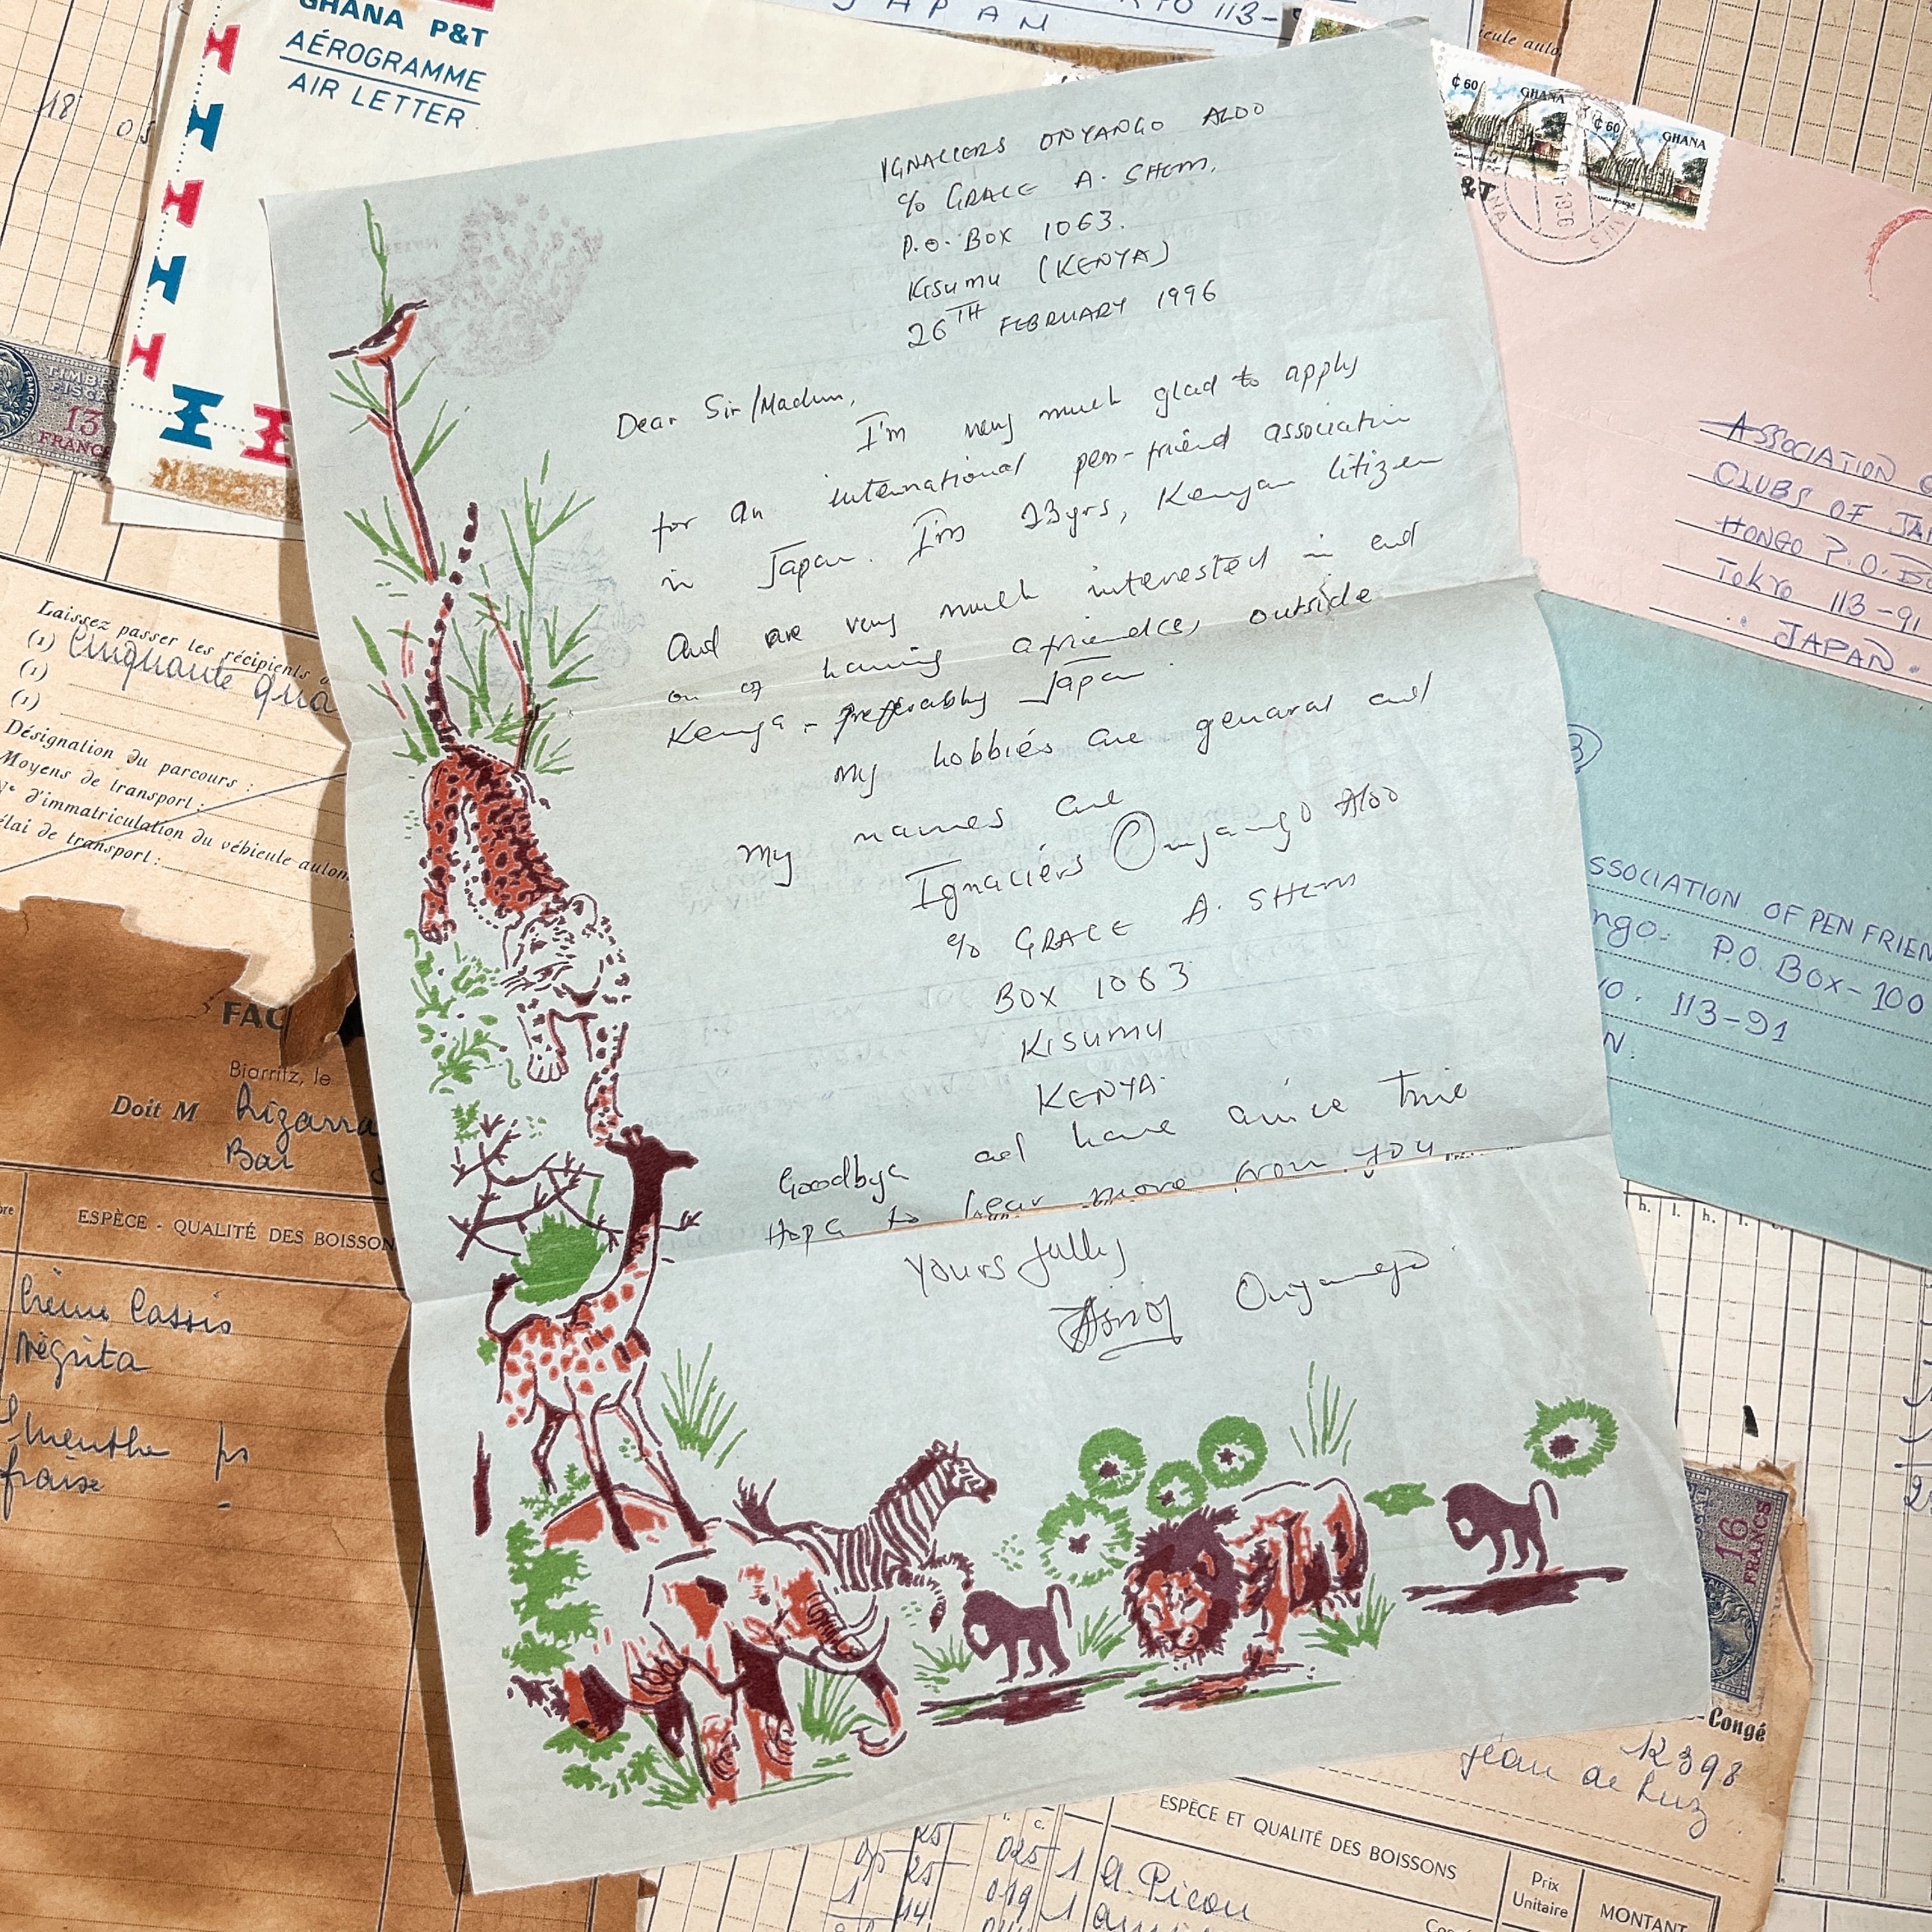 GHANA P&T
AÉROGRAMME
AIR LETTER
JAPAN
113-
18
TIMBRE
FISCAL
13
FRANCS
IGNACIERS ONYANGO ALOO
℅ GRACE A. SHEM,
P.O. BOX 1063.
KISUMU (KENYA)
26TH FEBRUARY 1996
Dear Sir/Madum,
I'm very much glad to apply
for an international pen-friend association
in Japan. I'm 23yrs, Kenyan Citizen
and are very much interested in and
on of having a friends, outside
Kenya - prefferably Japan
My hobbies are general and
My names are
Ignaciers Onyango Aloo
℅ GRACE A. SHEM
BOX 1063
KISUMU
KENYA.
Goodbye and have a nice time
Hope to hear more from you
Yours fully
Onyango
¢60 GHANA
¢60 GHANA
&T
ASSOCIATION
CLUBS OF JA
HONGO P.O. B
TOKYO 113-91
JAPAN.
3
SSOCIATION OF PEN FRIEN
ngo. P.O. BOX-100
YO. 113-91
N.
icule auto
Laissez passer les récipients
(1) Cinquante qua
(1)
(1)
Désignation du parcours :
Moyens de transport :
N° d'immatriculation du véhicule autom
élai de transport :
FAC
Biarritz, le
Doit M
Bar
ESPÈCE - QUALITÉ DES BOISSON
Crème Cassis
Négrita
menthe
fraise
h. l. h. l. h. l.
16
FRANCS
Congé
12398
Jean de Luz
ESPÈCE ET QUALITÉ DES BOISSONS
Prix
Unitaire
MONTANT
c.
25
25
025 1 a. Picon
1 14 019 1